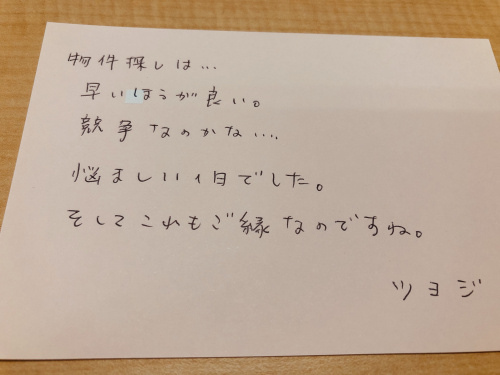 物件探しは…
早いほうが良い。
競争なのかな….
悩ましい1日でした。
そしてこれもご縁なのですね。
ツヨジ